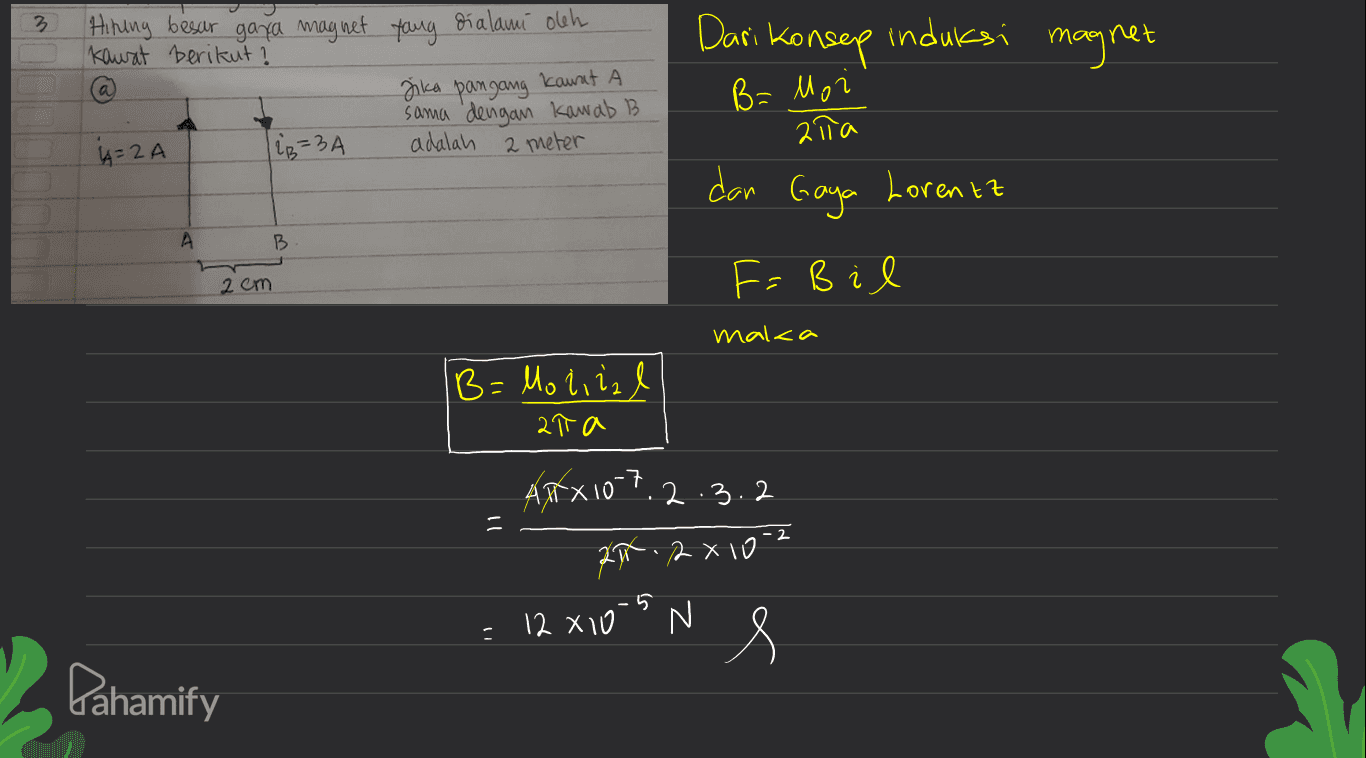 3 Hitung besar gaya magnet yang dialami oleh
kawat berikut!
(a)
Jika pangang kawat A
sama dengan kawab B
adalah 2 meter
iA=2A
iB=3A
A B
2 cm
Dari konsep induksi magnet
B= μ₀i
2πa
dan Gaya Lorentz
F= B i l
maka
B= μ₀ i₁ i₂ l
2πa
= 4π×10⁻⁷.2.3.2
2π.2×10⁻²
= 12 ×10⁻⁵ N
Pahamify